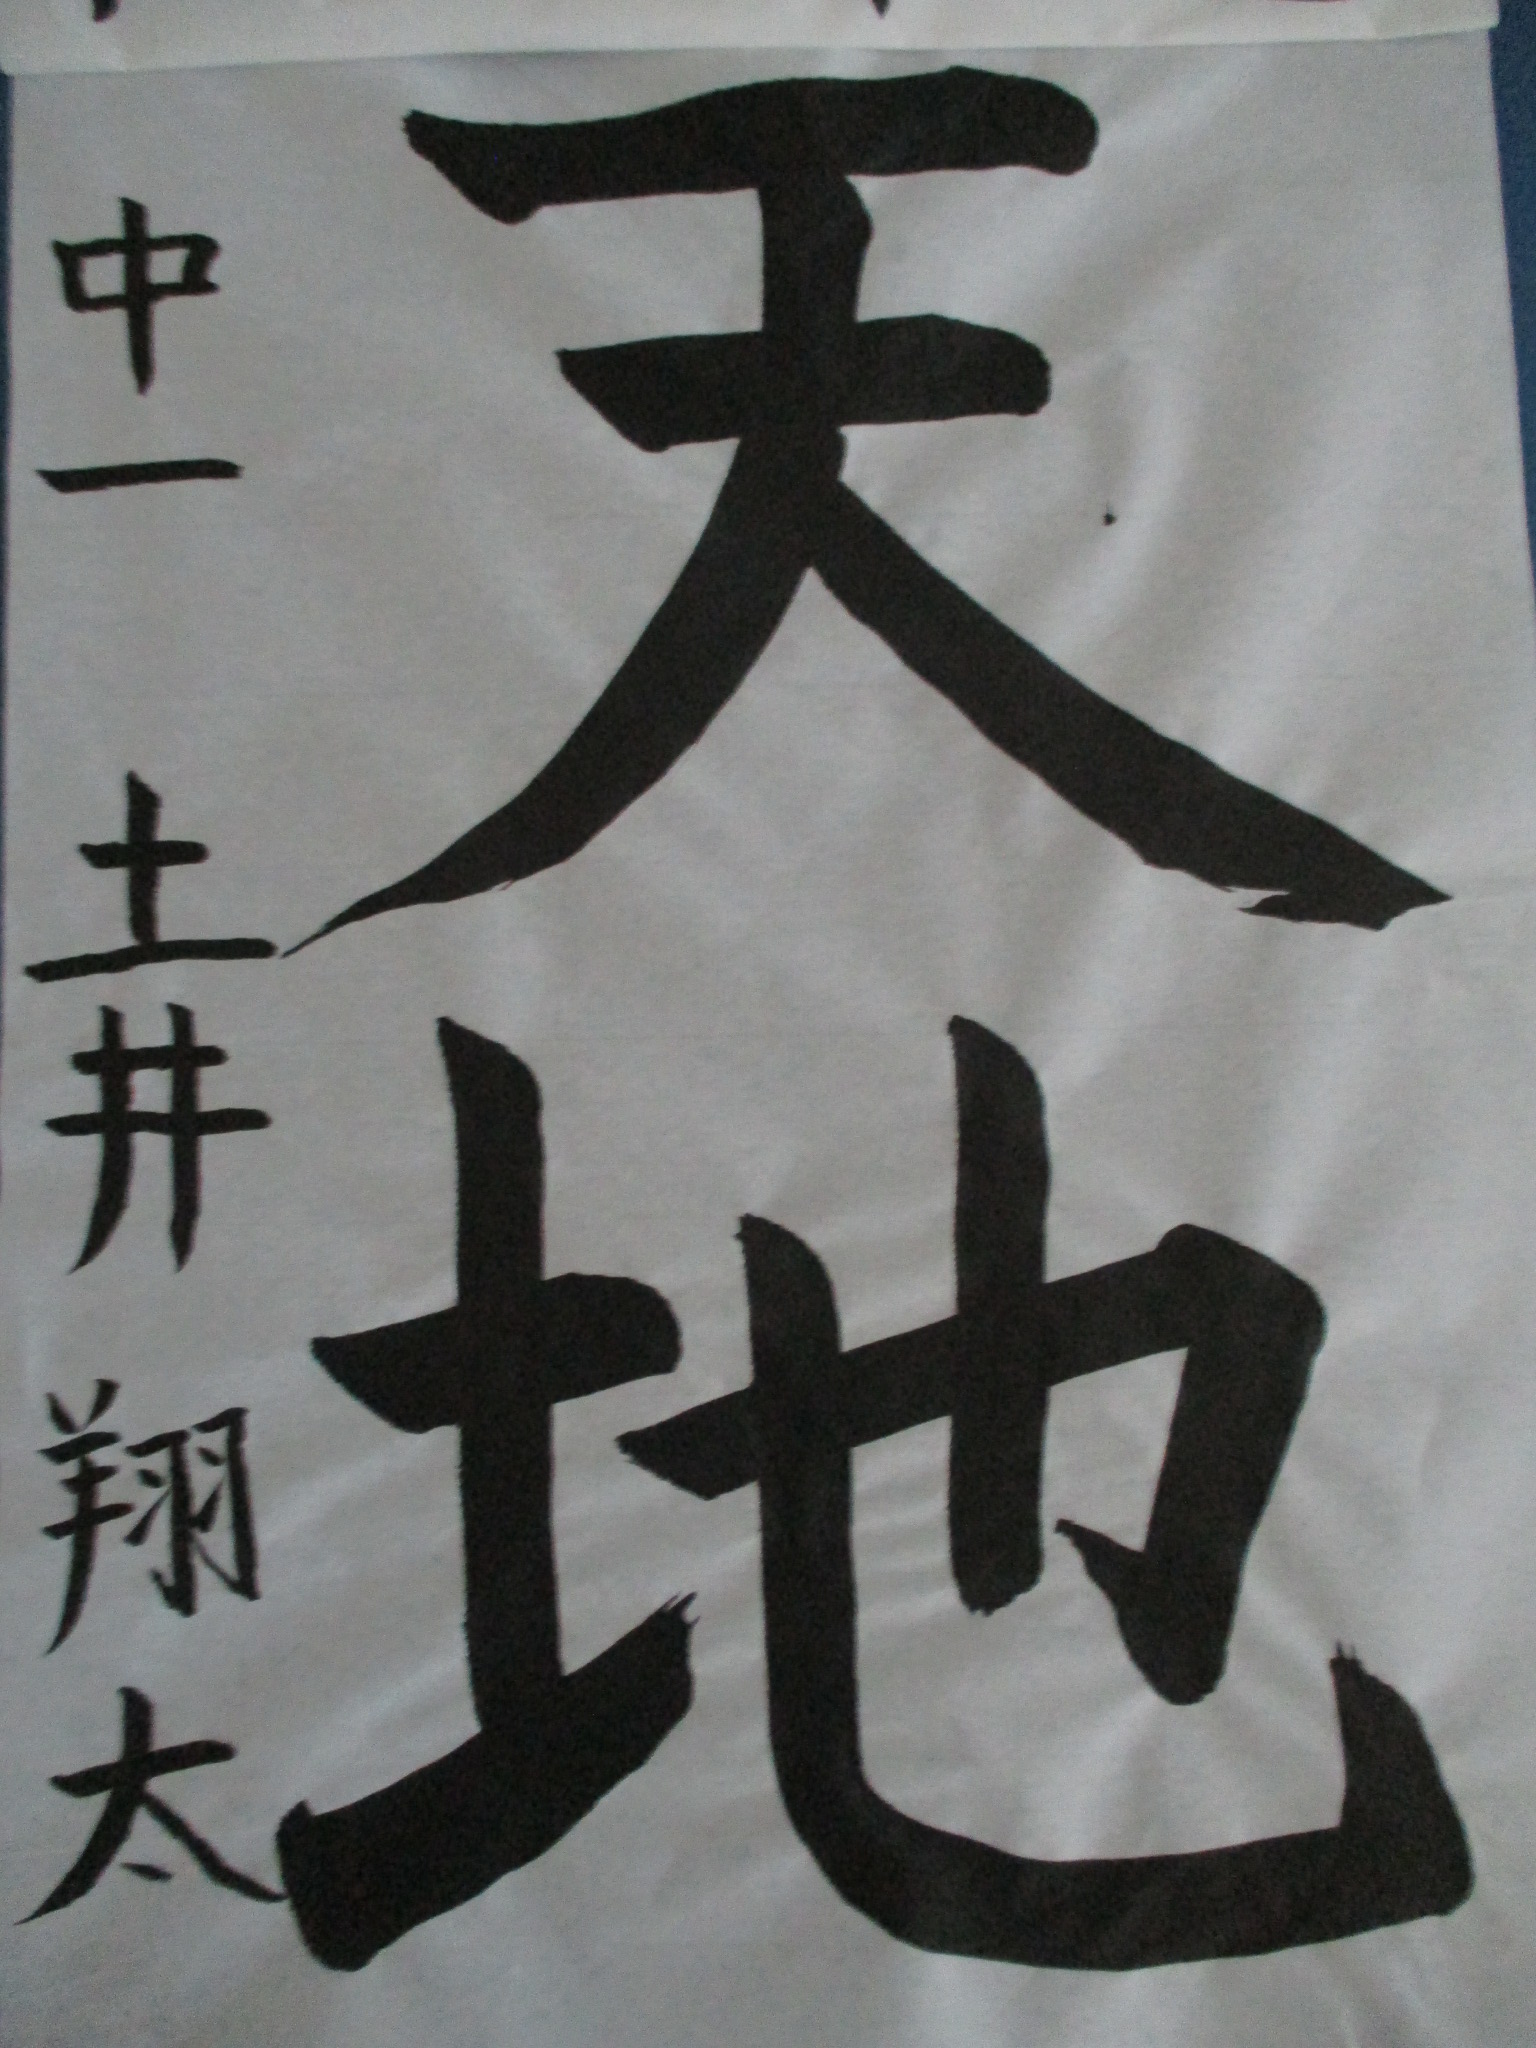 天地
中一 土井翔太